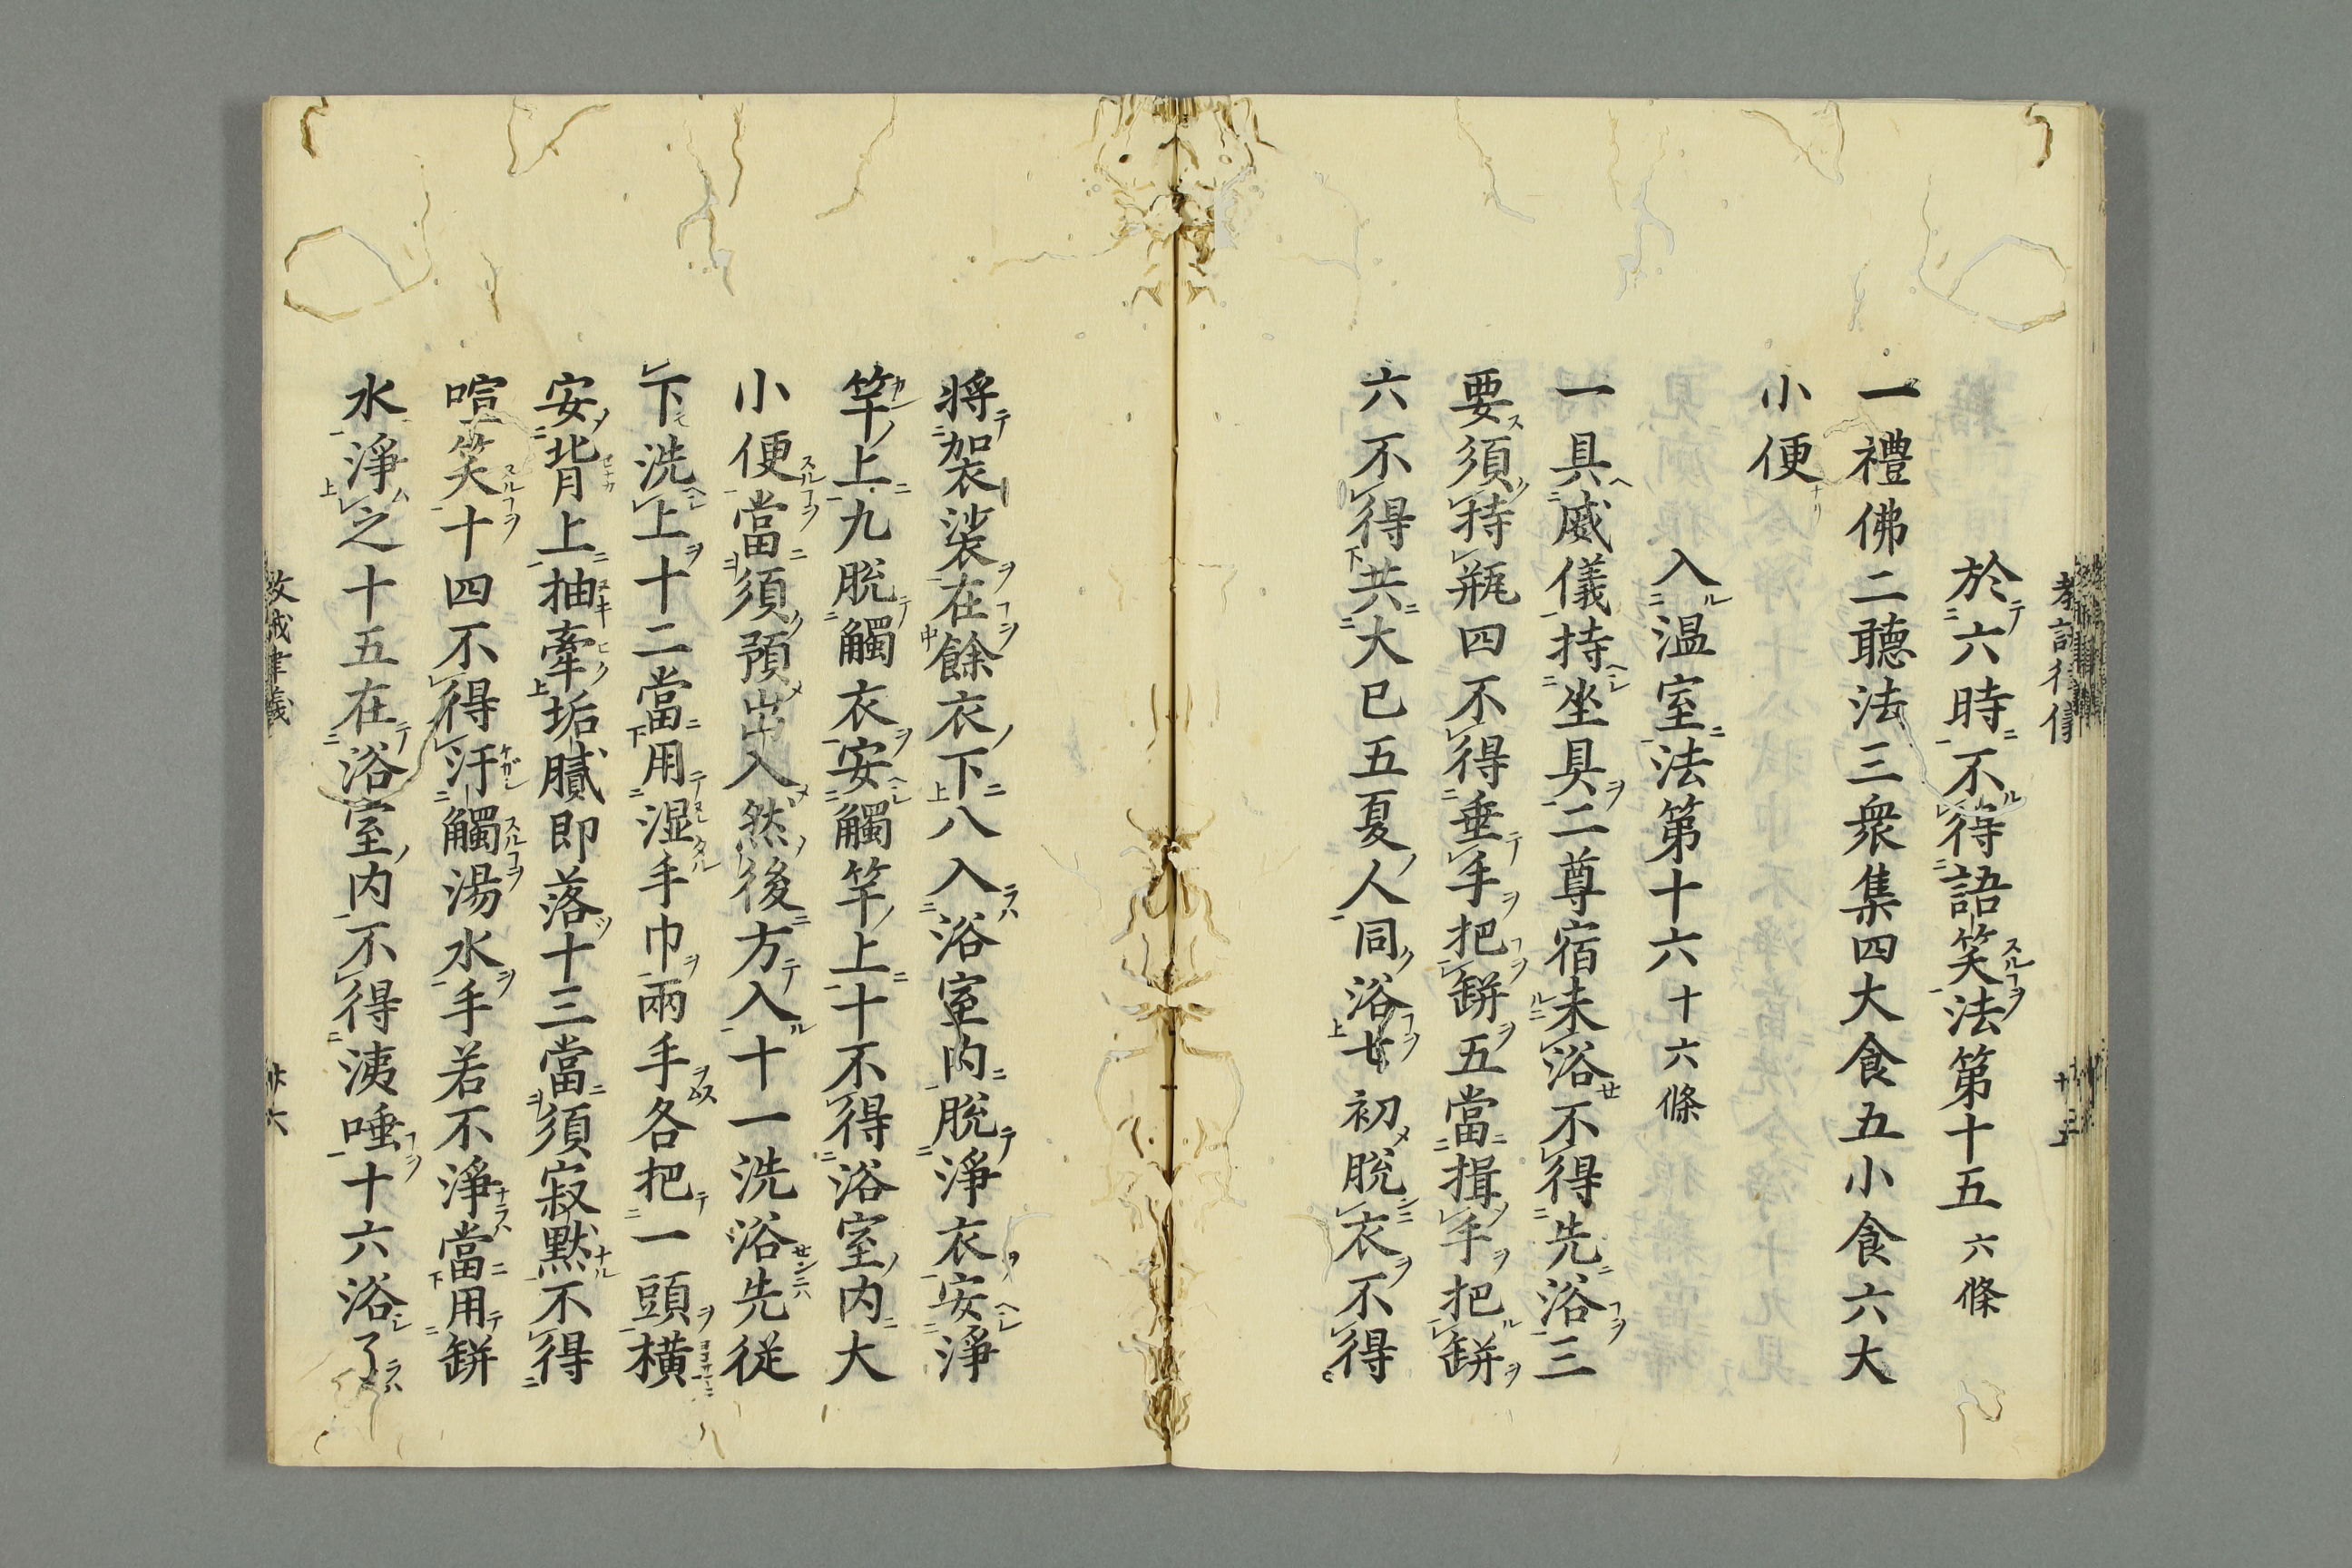 於六時不得語笑法第十五六條
一禮佛二聽法三衆集四大食五小食六大
小便
入温室法第十六十六條
一具威儀持坐具二尊宿未浴不得先浴三
要須持瓶四不得垂手把缾五當揖手把缾
六不得共大已五夏人同浴七初脫衣不得
將袈裟在餘衣下八入浴室内脫淨衣安淨
竿上九脫觸衣安觸竿上十不得浴室内大
小便當須預出入然後方入十一洗浴先従
下洗上十二當用湿手巾兩手各把一頭横
安背上抽牽垢膩即落十三當須寂默不得
喧笑十四不得汙觸湯水手若不淨當用缾
水淨之十五在浴室内不得洟唾十六浴了